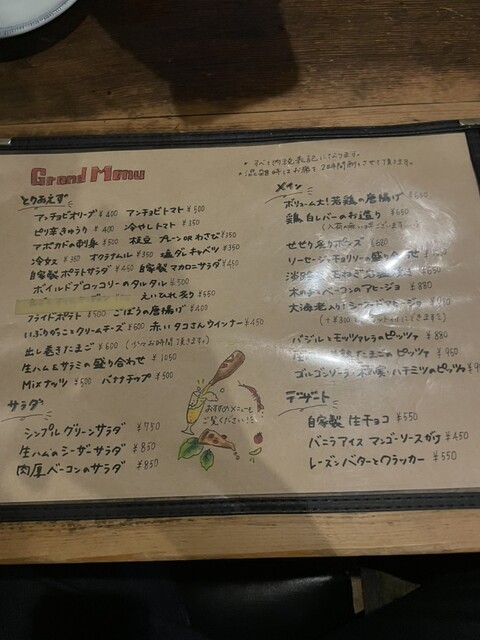 Grand Menu
・すべて内税表記になります。
・混雑時はお席で2時間制とさせて頂きます。
とりあえず
アンチョビオリーブ ¥400 アンチョビトマト ¥500
ピリ辛きゅうり ¥400 冷やしトマト ¥350
アボカドの刺身 ¥500 枝豆 プレーン or わさび ¥350
冷奴 ¥350 オクラナムル ¥350 塩ダレキャベツ ¥350
自家製 ポテトサラダ ¥450 自家製 マカロニサラダ ¥450
ボイルドブロッコリーのタルタル ¥500
えいひれ炙り ¥650
フライドポテト ¥500 ごぼうの唐揚げ ¥400
いぶりがっことクリームチーズ ¥600 赤いタコさんウインナー ¥450
出し巻きたまご ¥600 (少々お時間頂きます。)
生ハム&サラミの盛り合わせ ¥1050
Mixナッツ ¥500 バナナチップ ¥500
サラダ
シンプルグリーンサラダ ¥750
生ハムのシーザーサラダ ¥850
肉厚ベーコンのサラダ ¥850
おすすめメニューも
ご覧ください!!
メイン
ボリューム大!若鶏の唐揚げ ¥650
鶏白レバーのお造り ¥650
せせり炙りポンズ ¥680
ソーセージとチョリソーの盛り
きのことベーコンのアヒージョ ¥880
大海老入り!シーフードアヒージョ
バジルとモッツァレラのピッツァ ¥880
たまごのピッツァ ¥950
ゴルゴンゾーラ ハチミツのピッツァ
デザート
自家製 生チョコ ¥550
バニラアイス マンゴーソースがけ ¥450
レーズンバターとクラッカー ¥550